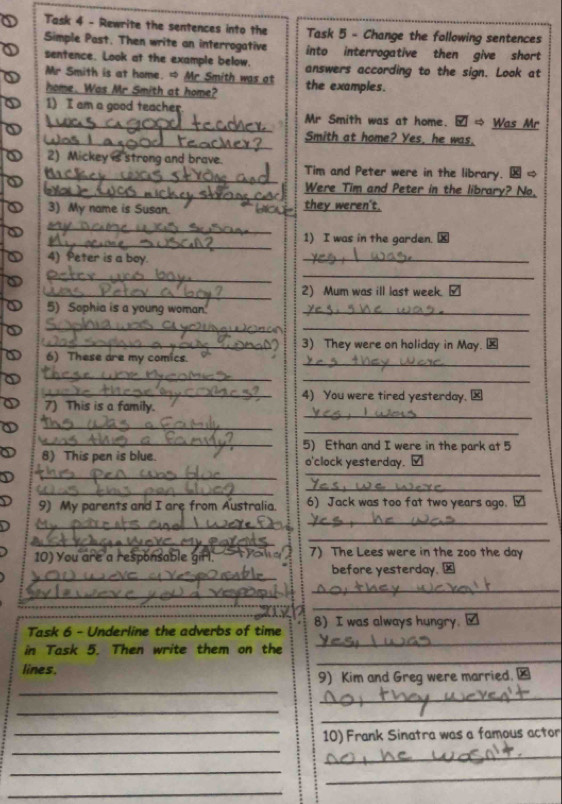 Task 4 - Rewrite the sentences into the
Simple Past. Then write an interrogative
sentence. Look at the example below.
Mr Smith is at home. ⇨ Mr Smith was at
home. Was Mr Smith at home?
1) I am a good teacher
I was a good teacher.
Was I a good teacher?
2) Mickey is strong and brave.
Mickey was strong and
brave was mickey strong and
brave
3) My name is Susan.
my name was susan.
My name susan?
4) Peter is a boy.
peter was boy.
was Peter a boy?
5) Sophia is a young woman.
Sophia was a young woman
was sophia a young woman?
6) These are my comics.
these were my comics
were these my comics?
7) This is a family.
this was a family
was this a family?
8) This pen is blue.
this pen was blue
was this pen blue?
9) My parents and I are from Australia.
My parents and I were
were my parents
Australia?
10) You are a responsable girl.
you were a responsable
were you a
girl?
Task 6 - Underline the adverbs of time
in Task 5. Then write them on the
lines.
Task 5 - Change the following sentences
into interrogative then give short
answers according to the sign. Look at
the examples.
Mr Smith was at home. ☑ ⇨ Was Mr
Smith at home? Yes, he was.
Tim and Peter were in the library. ☒ ⇨
Were Tim and Peter in the library? No,
they weren't.
1) I was in the garden. ☒
yes, I was.
2) Mum was ill last week. ☑
yes, she was.
3) They were on holiday in May. ☒
yes they were
4) You were tired yesterday. ☒
yes, I was
5) Ethan and I were in the park at 5
o'clock yesterday. ☑
Yes, we were
6) Jack was too fat two years ago. ☑
yes, he was
7) The Lees were in the zoo the day
before yesterday. ☒
no, they weren't
8) I was always hungry. ☑
Yes, I was
9) Kim and Greg were married. ☒
no, they weren't
10) Frank Sinatra was a famous actor
no, he wasn't.